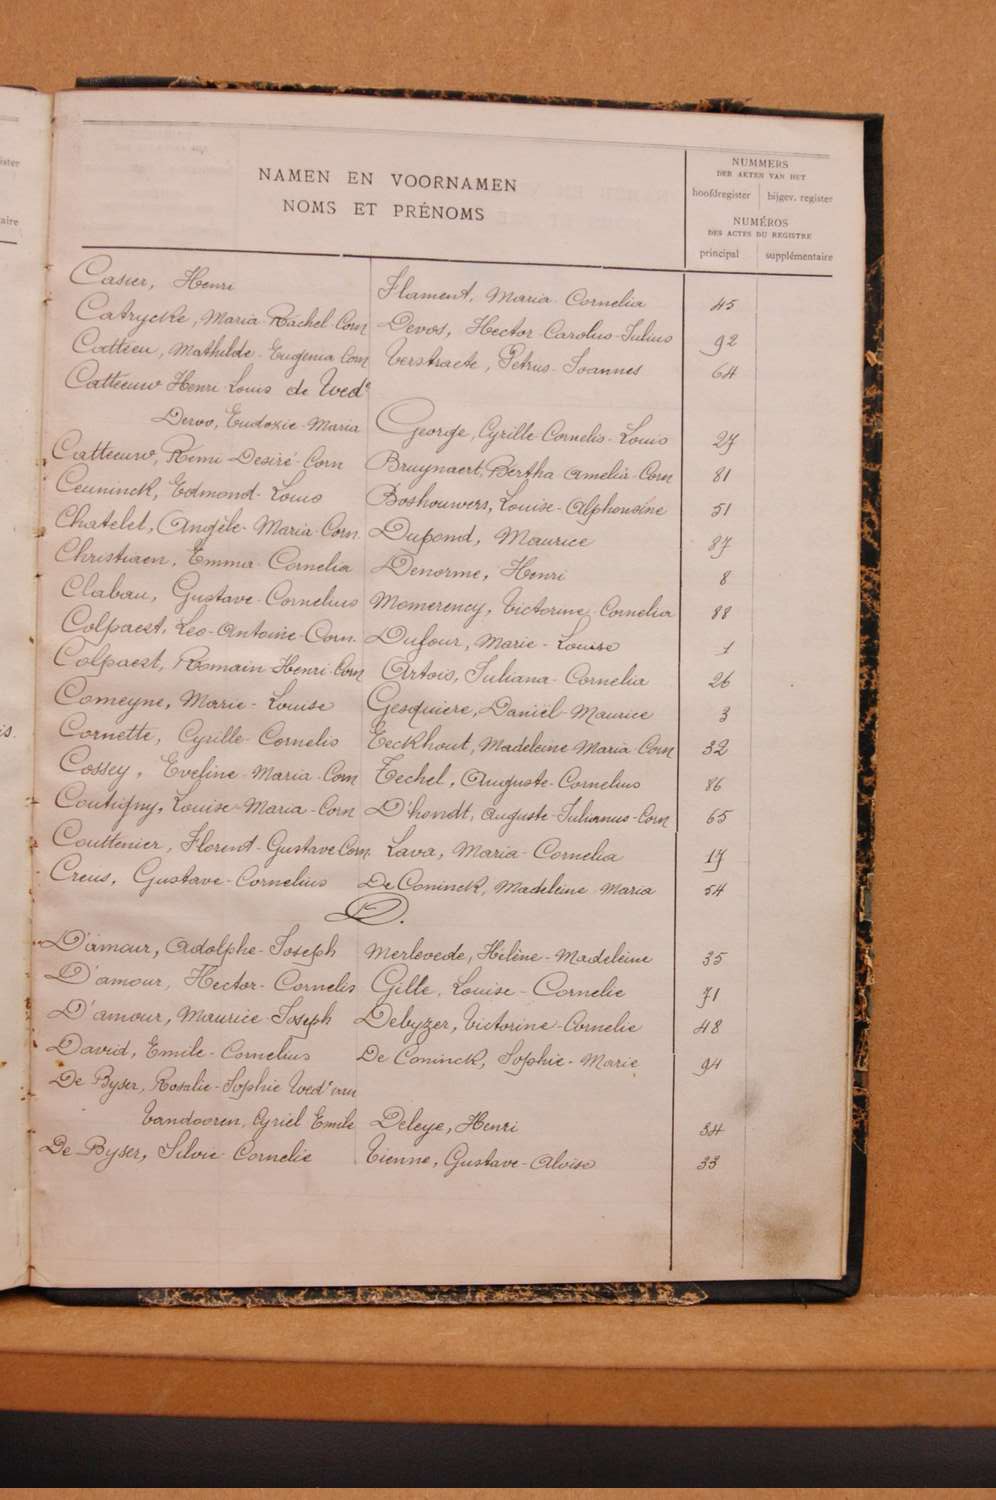 ister
aire
is.
NAMEN EN VOORNAMEN
NOMS ET PRÉNOMS
NUMMERS
DER AKTEN VAN HET
hoofdregister bijgev. register
NUMÉROS
DES ACTES DU REGISTRE
principal supplémentaire
Casier, Henri Flament, Maria-Cornelia 45
Catrycke, Maria-Rachel-Corn Devos, Hector-Carolus-Julius 92
Catteeu, Mathilde-Eugenia Corn Verstraete, Petrus-Joannes 64
Catteeuw Henri Louis de Wede
Devoo, Eudoxie-Maria George, Cyrille-Cornelis-Louis 27
Catteeuw, Remi-Desiré-Corn Bruynaert, Bertha Amelia-Corn 81
Ceuninck, Edmond-Louis Boshouwers, Louise-Alphonsine 51
Chatelet, Angèle-Maria-Corn. Dupond, Maurice 87
Christiaen, Emma-Cornelia Denorme, Henri 8
Clabau, Gustave-Cornelius Momerency, Victorine-Cornelia 88
Colpaest, Leo-Antoine-Corn. Dufour, Marie-Louise 1
Colpaest, Romain-Henri-Corn Artois, Juliana-Cornelia 26
Comeyne, Marie-Louise Gesquiere, Daniël-Maurice 3
Cornette, Cyrille-Cornelis Eeckhout, Madeleine-Maria-Corn 32
Cossey, Eveline-Maria-Corn Techel, Auguste-Cornelius 86
Coutigny, Louise-Maria-Corn D'hondt, Auguste-Julianus-Corn 65
Couttenier, Florent-Gustave Corn. Lava, Maria-Cornelia 17
Creus, Gustave-Cornelius De Coninck, Madeleine Maria 54
D.
D'amour, Adolphe-Joseph Merlevede, Hélène-Madeleine 35
D'amour, Hector-Cornelis Gille, Louise-Cornelie 71
D'amour, Maurice-Joseph Debyzer, Victorine-Cornelie 48
David, Emile-Cornelius De Coninck, Sophie-Marie 94
De Byser, Rosalie-Sophie Wede van
Vandooren, Cyriel Emile Deleye, Henri 34
De Byser, Silvie-Cornelie Tienne, Gustave-Aloïse 33